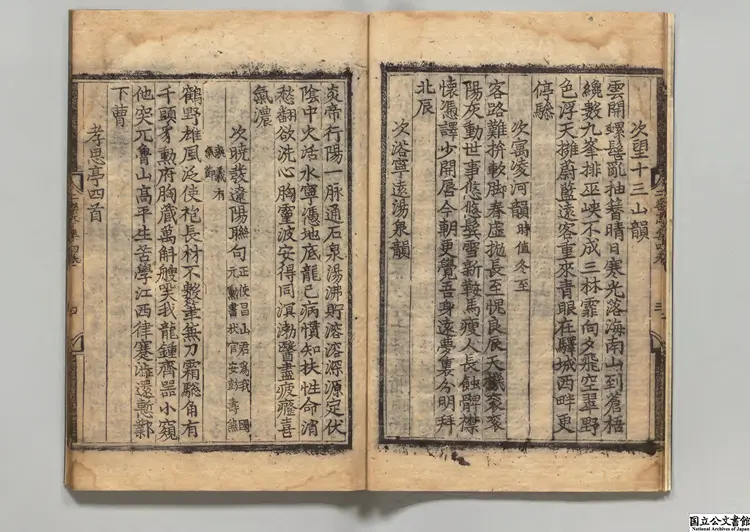 次望十三山韻
雲開螺髻亂抽簪晴日寒光落海南山到蒼梧
纔數九峯排巫峽不成三林霏向夕飛空翠野
色浮天擁蔚藍遠客重來青眼在驛城西畔更
停驂
次寓凌河韻 時値冬至
客路難拚較脚春虛抛長至愧良辰天機袞袞
陽灰動世事悠悠鬢雪新鞍馬瘦人長蝕髀襟
懷憑譯少開唇今朝更覺吾身遠夢裏分明拜
北辰
次浴寧遠湯泉韻
炎帝行陽一脉通石泉湯沸貯溶溶深源定伏
陰中火活水寧憑地底龍已病慣知扶性命消
愁翻欲洗心胸靈波安得同溟渤醫盡疲癃喜
氣濃
次曉發遼陽聯句 正使昌山君爲我國
元勳書狀官安彭壽
鶴野雄風泛使 長材不數 無刀霜驄角有
千頭豸勲府胸藏萬斛艘笑我龍鍾齊器小窺
他突兀魯山高平生苦學江西律蹇澁還慙鄴
下曹
孝思亭四首
国立公文書館
National Archives of Japan